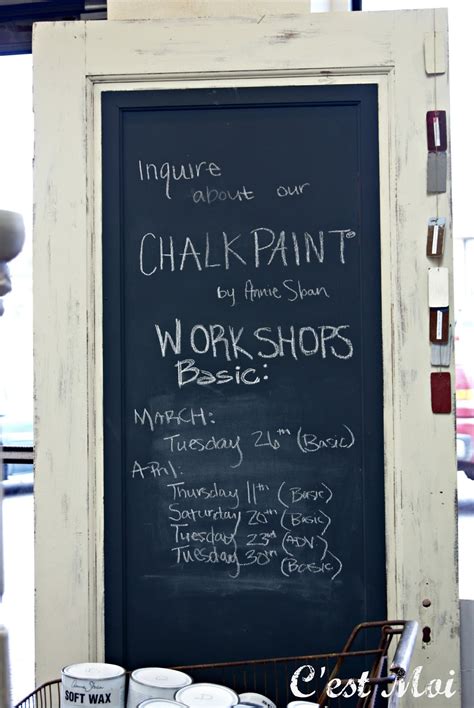 Inquire
about our
CHALK PAINT®
by Annie Sloan
WORKSHOPS
Basic:
MARCH:
Tuesday 26th (Basic)
April:
Thursday 11th (Basic)
Saturday 20th (Basic)
Tuesday 23rd (ADV)
Tuesday 30th (Basic)
Annie Sloan
SOFT WAX
C'est Moi